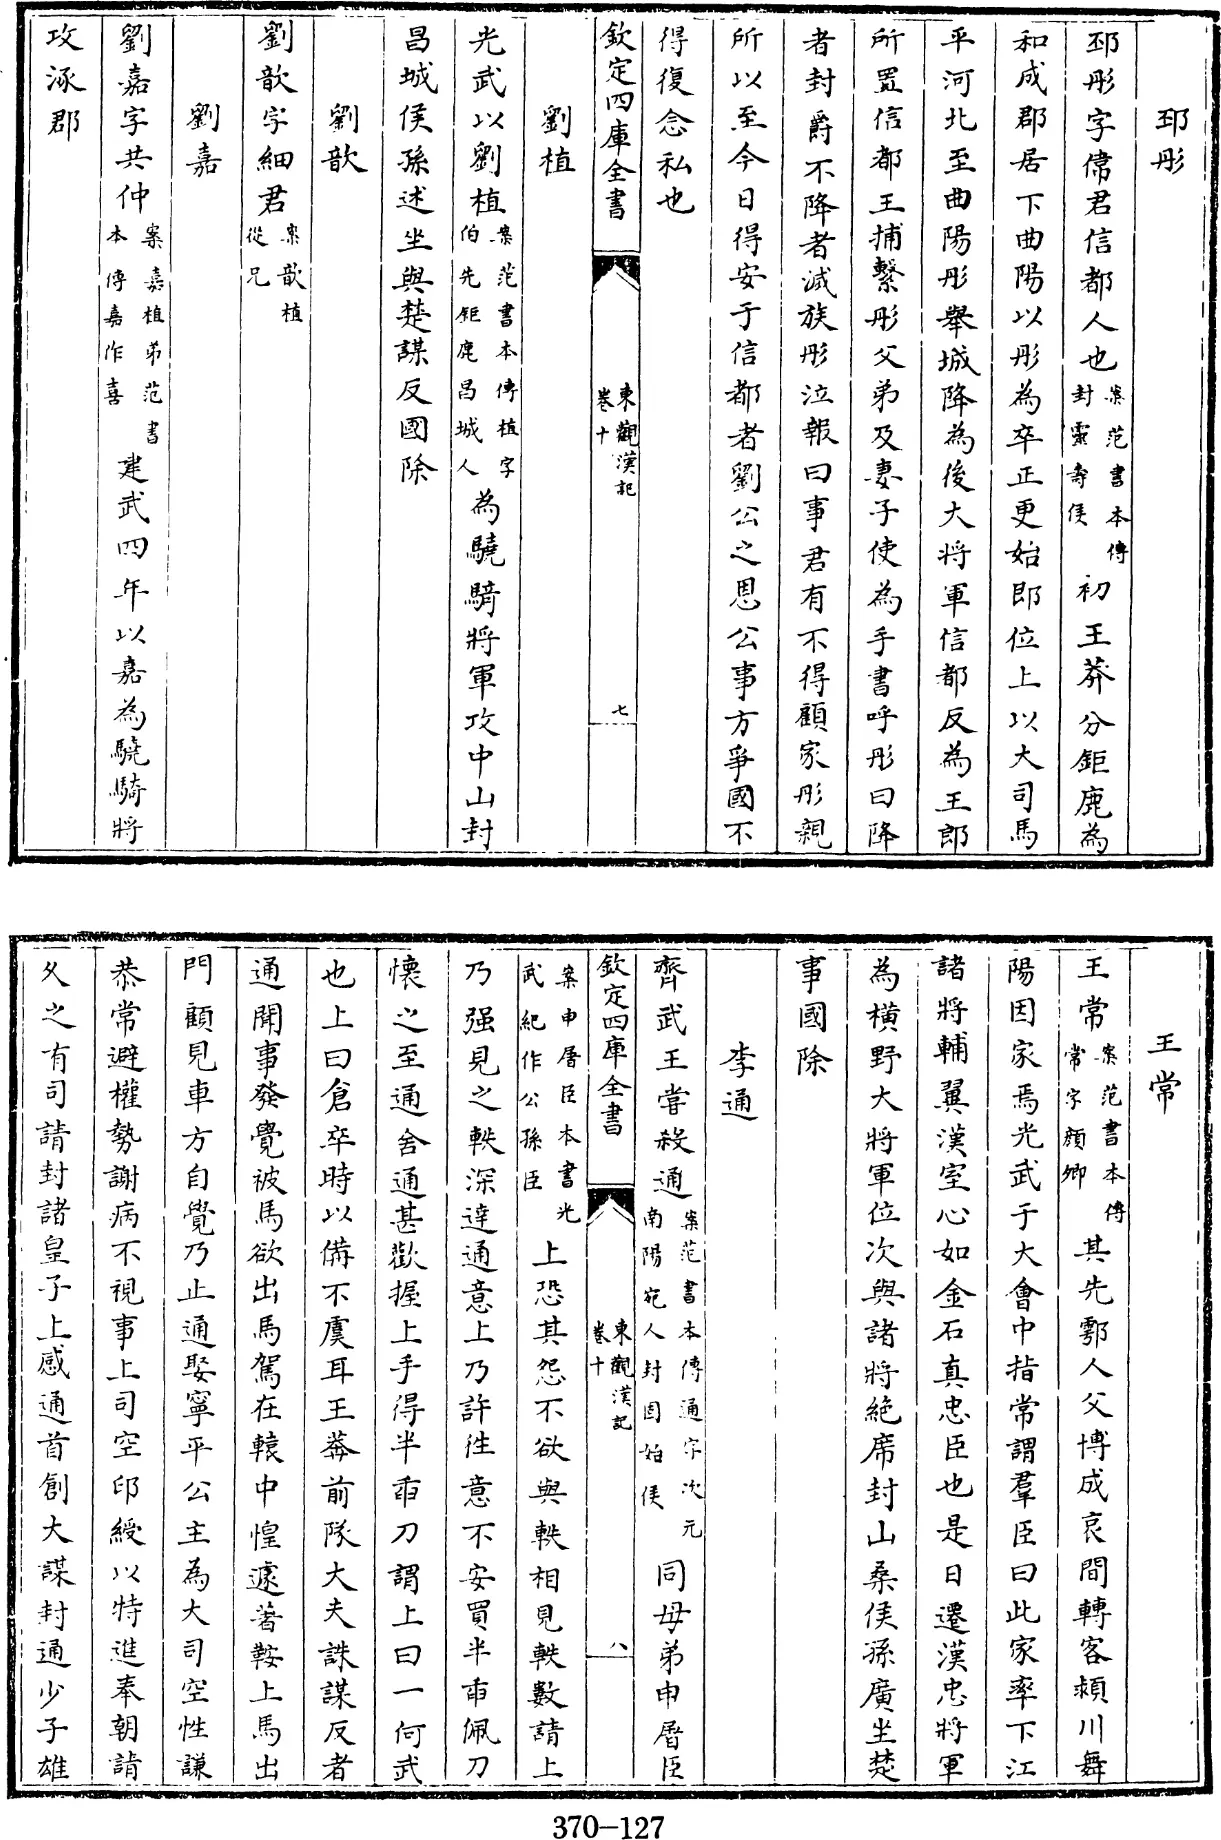 邳彤
邳彤字偉君信都人也案范書本傳封靈壽侯初王莽分鉅鹿為
和成郡居下曲陽以彤為卒正更始即位上以大司馬
平河北至曲陽彤舉城降為後大將軍信都反為王郎
所置信都王捕繫彤父弟及妻子使為手書呼彤曰降
者封爵不降者滅族彤泣報曰事君有不得顧家彤親
所以至今日得安于信都者劉公之恩公事方爭國不
得復念私也
欽定四庫全書 東觀漢記 卷十 七
劉植
光武以劉植案范書本傳植字伯先鉅鹿昌城人為驍騎將軍攻中山封
昌城侯孫述坐與楚謀反國除
劉歆
劉歆字細君案歆植從兄
劉嘉
劉嘉字共仲案嘉植弟范書本傳嘉作喜建武四年以嘉為驍騎將
攻涿郡
王常
王常案范書本傳常字顏卿其先鄠人父博成哀間轉客潁川舞
陽因家焉光武于大會中指常謂羣臣曰此家率下江
諸將輔翼漢室心如金石真忠臣也是日遷漢忠將軍
為橫野大將軍位次與諸將絶席封山桑侯孫廣坐楚
事國除
李通
齊武王嘗殺通案范書本傳通字次元南陽宛人封固始侯同母弟申屠臣
欽定四庫全書 東觀漢記 卷十 八
案申屠臣本書光武紀作公孫臣上恐其怨不欲與軼相見軼數請上
乃强見之軼深達通意上乃許往意不安買半臿佩刀
懷之至通舍通甚歡握上手得半臿刀謂上曰一何武
也上曰倉卒時以備不虞耳王莽前隊大夫誅謀反者
通聞事發覺被馬欲出馬駕在轅中惶遽著鞍上馬出
門顧見車方自覺乃止通娶寧平公主為大司空性謙
恭常避權勢謝病不視事上司空印綬以特進奉朝請
久之有司請封諸皇子上感通首創大謀封通少子雄
370-127